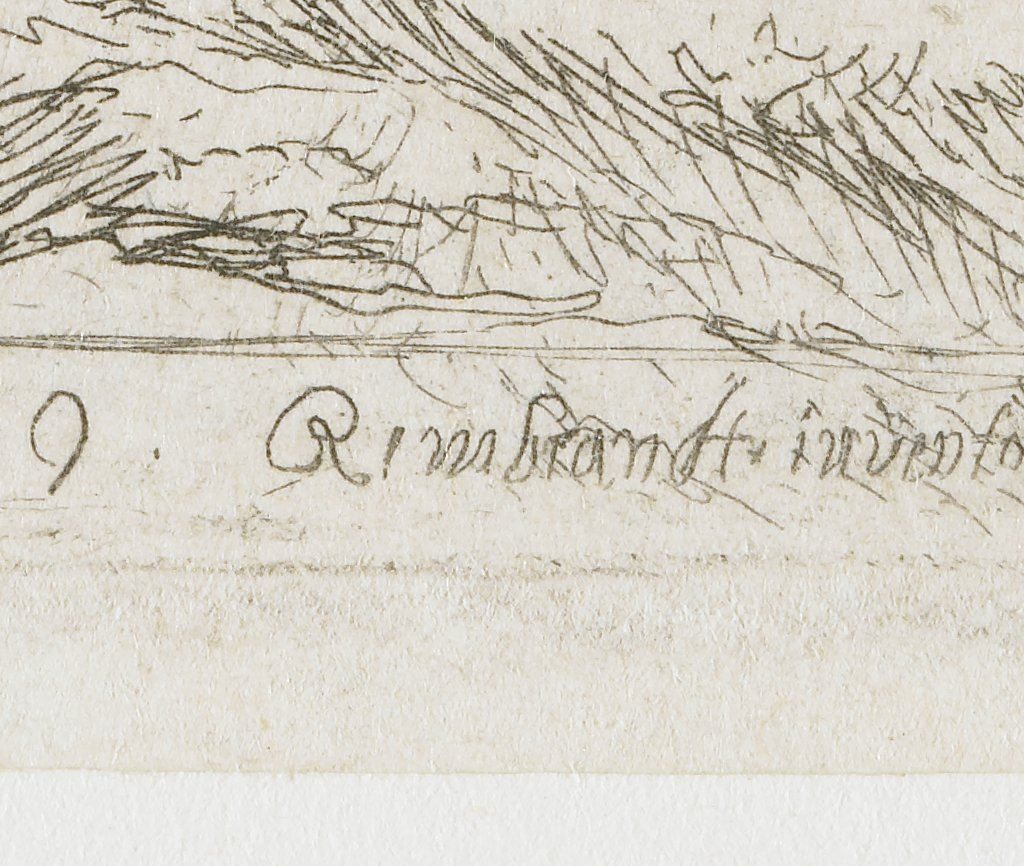 9. Rimbrandt. invento